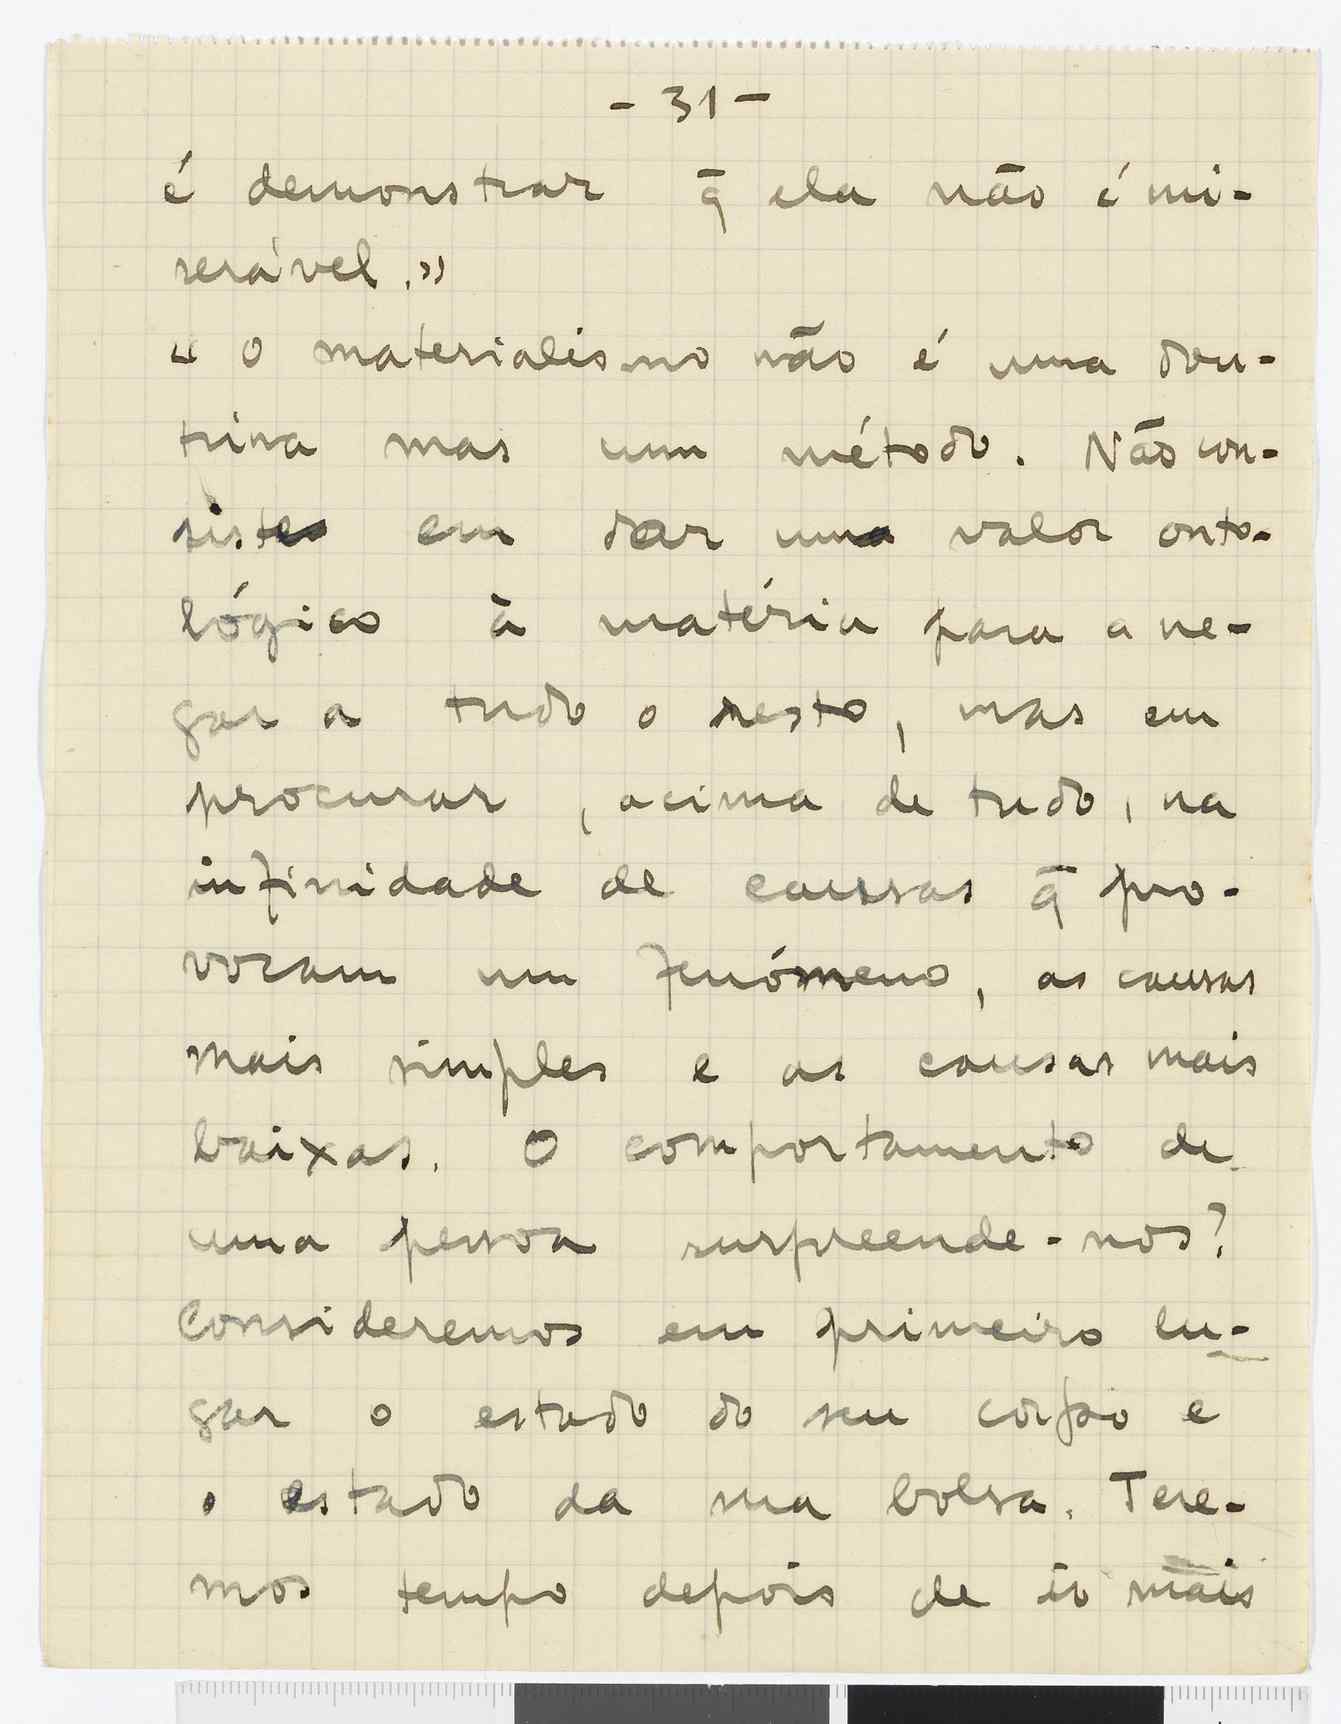 - 31 -
é demonstrar q̄ ela não é mi-
serável.»
“ O materialismo não é uma dou-
trina mas um método. Não con-
siste em dar um valor onto-
lógico à matéria para a ne-
gar a tudo o resto, mas em
procurar, acima de tudo, na
infinidade de causas q̄ pro-
vocam um fenómeno, as causas
mais simples e as causas mais
baixas. O comportamento de
uma pessoa surpreende-nos?
Consideremos em primeiro lu-
gar o estado do seu corpo e
o estado da sua bolsa. Tere-
mos tempo depois de ir mais